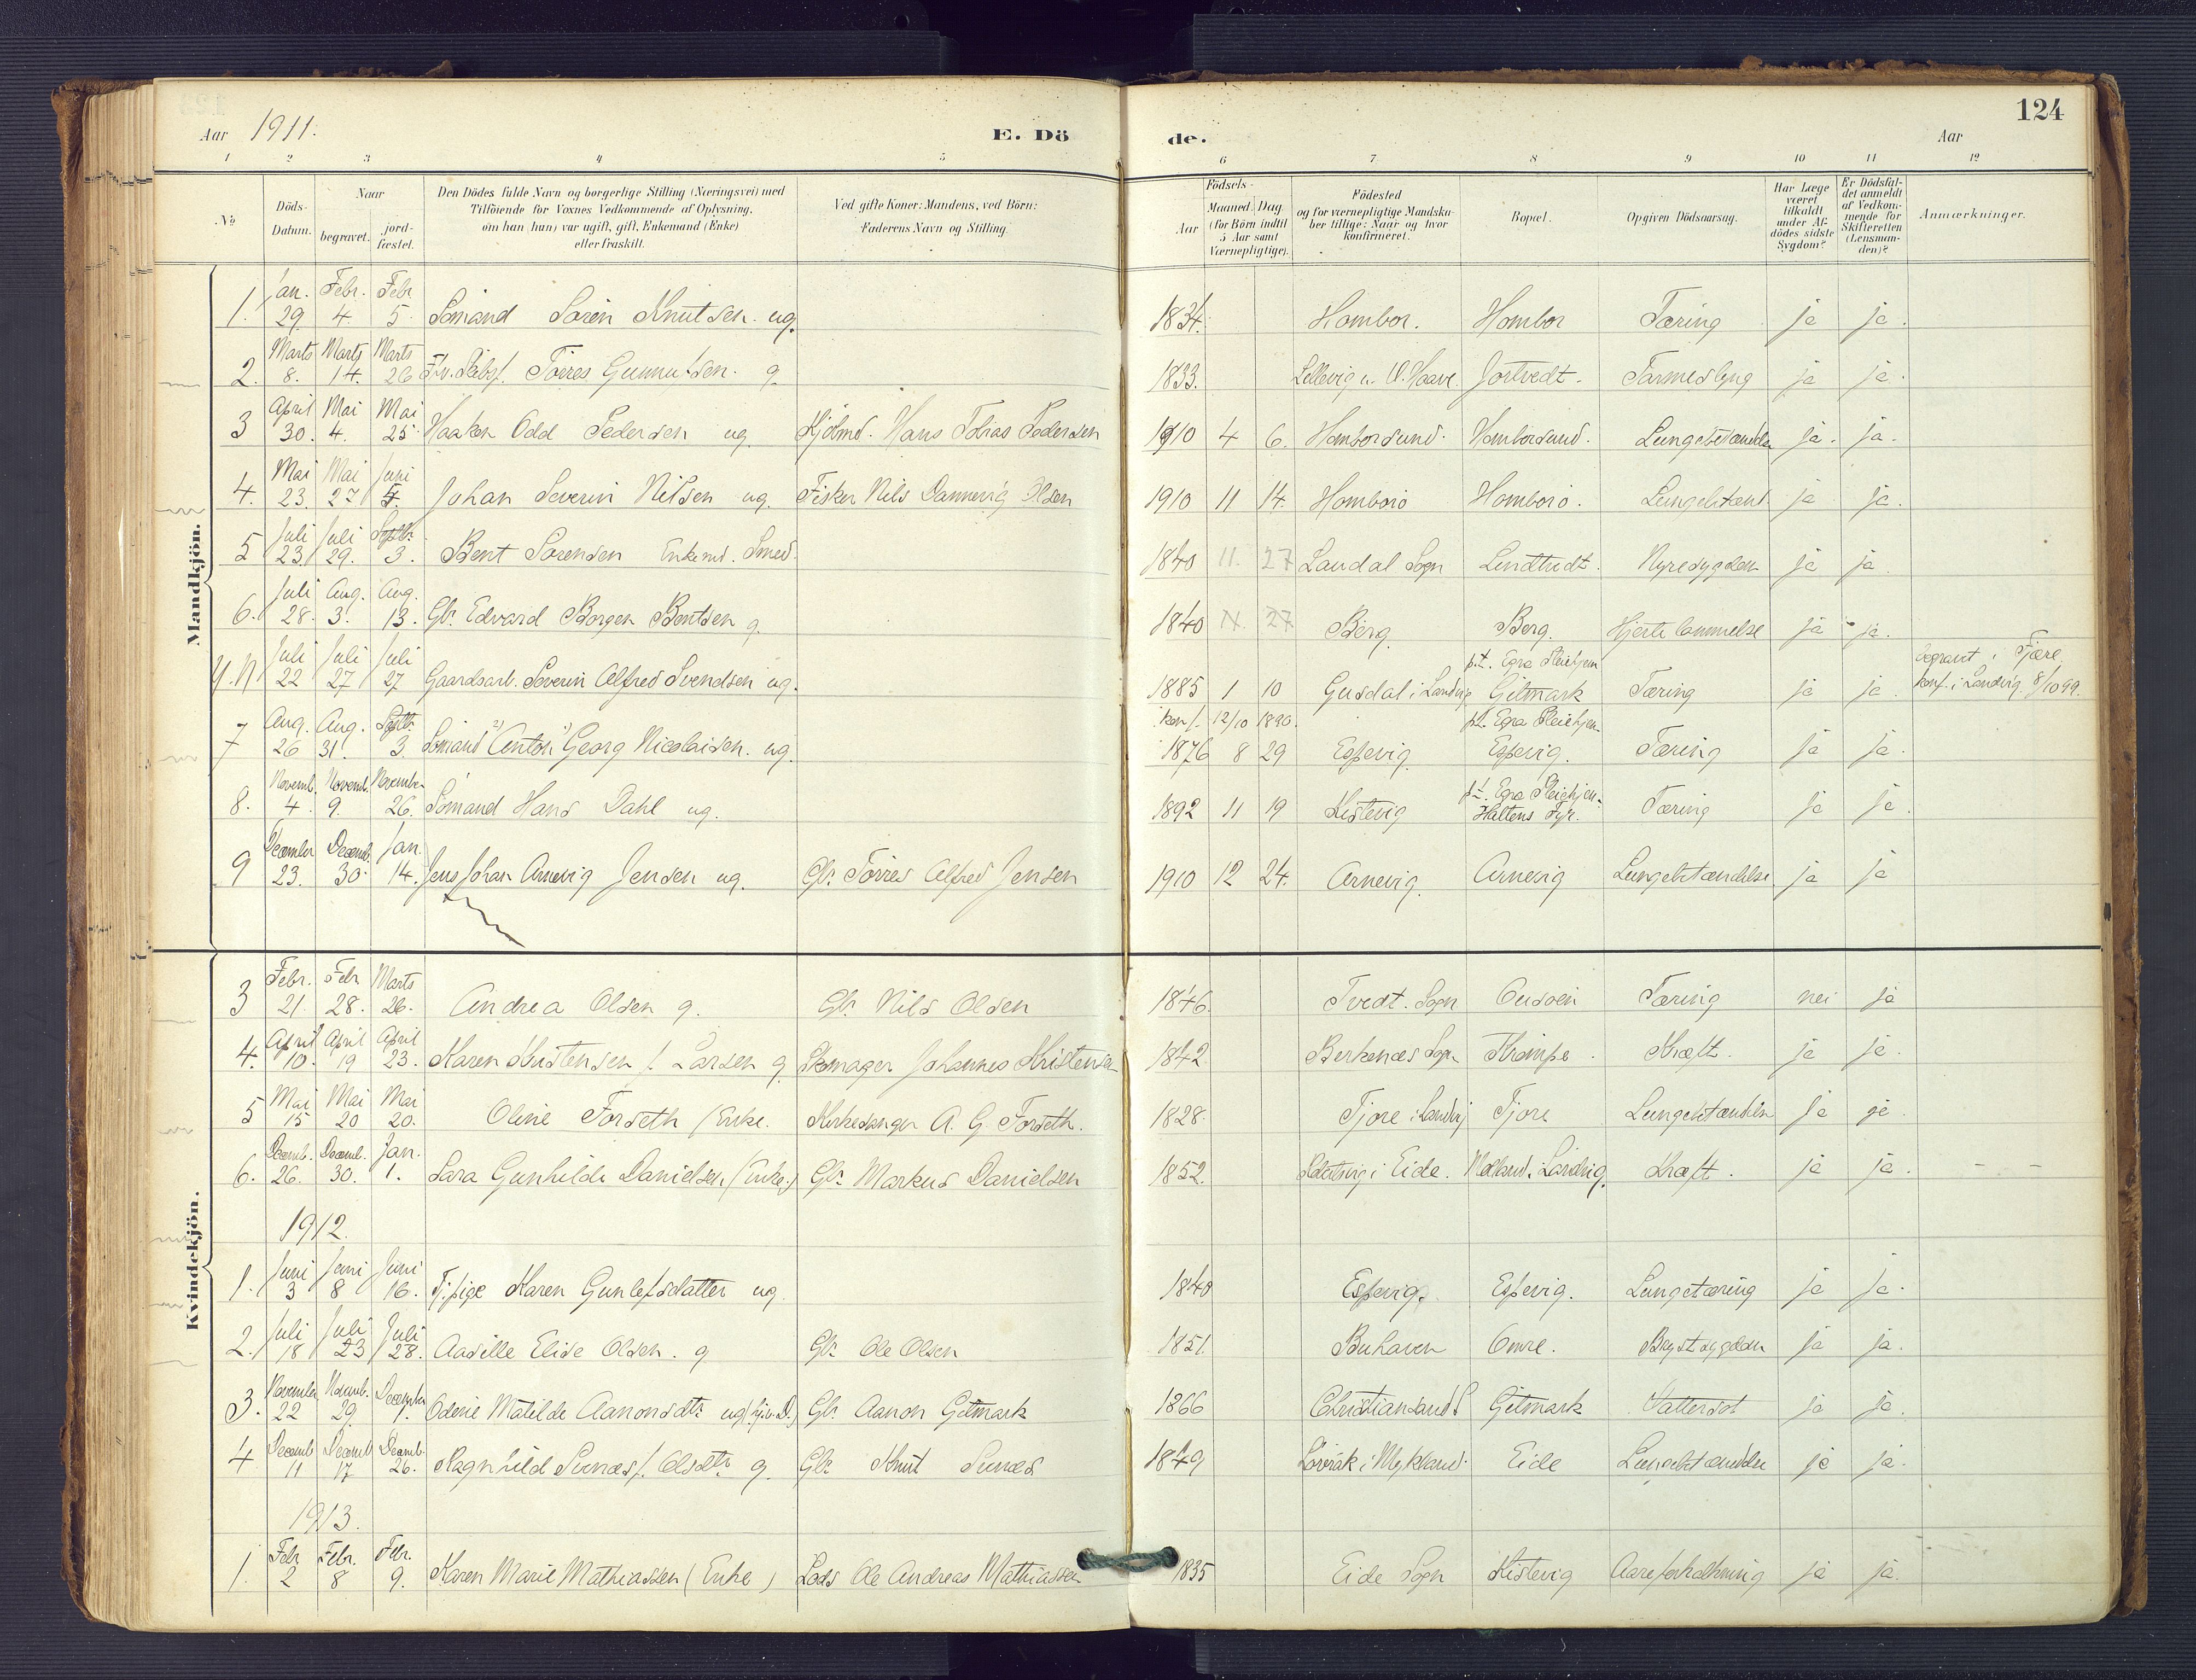 124
Aar 1911. E. Dö de. Aar
1 2 3 4 5 6 7 8 9 10 11 12
No. Döds-Datum. Naar begravet. jordfæstet. Den Dödes fulde Navn og borgerlige Stilling (Næringsvei) med Tilföiende for Voxnes Vedkommende af Oplysning, om han (hun) var ugift, gift, Enkemand (Enke) eller fraskilt. Ved gifte Koner: Mandens, ved Börn: Faderens Navn og Stilling. Födsels- Aar Maaned. Dag. (for Börn indtil 5 Aar samt Værnepligtige). Födested og for værnepligtige Mandskaber tillige: Naar og hvor konfirmeret. Bopæl. Opgiven Dödsaarsag. Har Læge været tilkaldt under Afdödes sidste Sygdom? Er Dödsfaldet anmeldt af Vedkommende for Skifteretten (Lensmanden)? Anmærkninger.
Mandkjön.
1. Jan. 29. Febr. 4. Febr 5. Sömand Sören Knutsen ug. 1834. Hombor. Hombor Tæring ja ja.
2. Marts 8. Marts 14. Marts 26 Törres Gunnufsen. g. 1833. Lillevig Jortvedt. Tarmeslyng ja ja.
3 April 30. Mai 4. Mai 25. Haaken Odd Pedersen ug. Hans Tobias Pedersen 1910 4 6. Homborsund. Homborsund. Lungebetændelse ja. ja.
4. Mai 23. Mai 27 Juni 5. Johan Severin Nilsen ug. Fisker Nils Dannevig Olsen 1910 11 14. Homborö Homborö. Lungebetænd. ja ja.
5 Juli 23. Juli 29. Septbr. 3. Bent Sørensen Enkemd. Smed. 1840 11. 27 Landal Sogn Lindtvedt. Nyresygdom ja ja.
6. Juli 28. Aug. 3. Aug. 13. Gbr. Edvard Borgen Bentsen g. 1840 11. 27 Berg Berg. Hjertelammelse ja ja.
U.N Juli 22 Juli 27 Juli 27 Gaardsarb. Severin Alfred Svendsen ug. 1885 1 10 Gusdal i Landvig p.t. Egra Pleiehjem Gitmark Tæring ja ja. begravt i Fjære konf. i Landvig 8/10 99.
7 Aug. 26 Aug. 31. Septbr. 3 Sömand 2) Anton 1) Georg Nicolaisen. ug. konf. 12/10 1890. 1876 8 29 Espevig p.t. Egra Pleiehjem Espevig. Tæring ja ja.
8. Novemb. 4. Novemb. 9. November 26. Sömand Hans Dahl ug. 1892 11 19 Kistevig p.t. Egra Pleiehjem. Haltens Fyr. Tæring ja ja.
9 December 23. Decemb. 30. Jan. 14. Jens Johan Arnevig Jensen ug. Gbr. Törres Alfred Jensen 1910 12 24. Arnevig. Arnevig Lungebetændelse ja ja
Kvindekjön.
3 Febr. 21. Febr 28. Marts 26. Andrea Olsen g. Gbr. Nils Olsen 1846. Tvedt. Sogn Tæring nei ja
4. April 10. April 19 April 23. Karen Kristensen f. Larsen g. Skomager Johannes Kristensen 1842. Berkenæs Sogn Kræft. ja ja.
5 Mai 15 Mai 20 Mai 20. Oline Forseth (Enke. Kirkesanger A. G. Forseth. 1828. Tjore i Landvig Tjore Lungebetændelse ja ja.
6. Decemb. 26. Decemb. 30. Jan. 1. Sara Gunhilde Danielsen (Enke.) Gbr. Markus Danielsen 1852. i Eide. i Landvig. Kræft. ja ja. – –
1912.
1. Juni 3 Juni 8 Juni 16. Tj.pige Karen Gunlefsdatter ug 1840 Espevig. Espevig. Lungetæring ja ja.
2. Juli 18 Juli 23 Juli 28. Aasille Elise Olsen. g Gbr. Ole Olsen 1851. Buhaven Omre. Brystsygdom ja ja.
3. November 22 Novemb. 29. December 1. Odine Matilde Aanonsdtr. ug Gbr. Aanon Gitmark 1866 Christiansand Gitmark Vattersot ja ja.
4 Decemb. 11 Decemb 17 Decemb. 26. Ragnhild Sunæs f. Olsdtr. g. Gbr. Knut Sunæs 1849 i Mykland. Eide Lungebetændelse ja ja.
1913.
1. Febr 2 Febr. 8 Febr. 9. Karen Marie Mathiassen (Enke) Lods Ole Andreas Mathiassen 1835 Eide Sogn Kistevig Aareforkalkning ja ja.